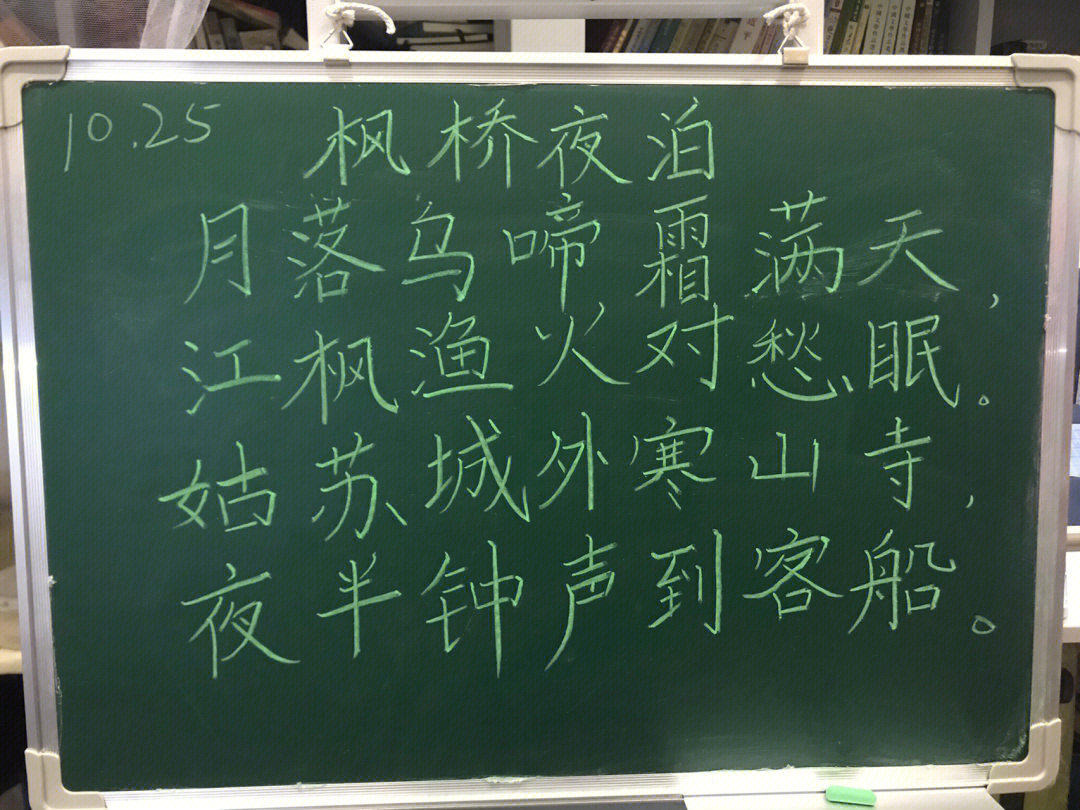 10.25
枫桥夜泊
月落乌啼霜满天，
江枫渔火对愁眠。
姑苏城外寒山寺，
夜半钟声到客船。